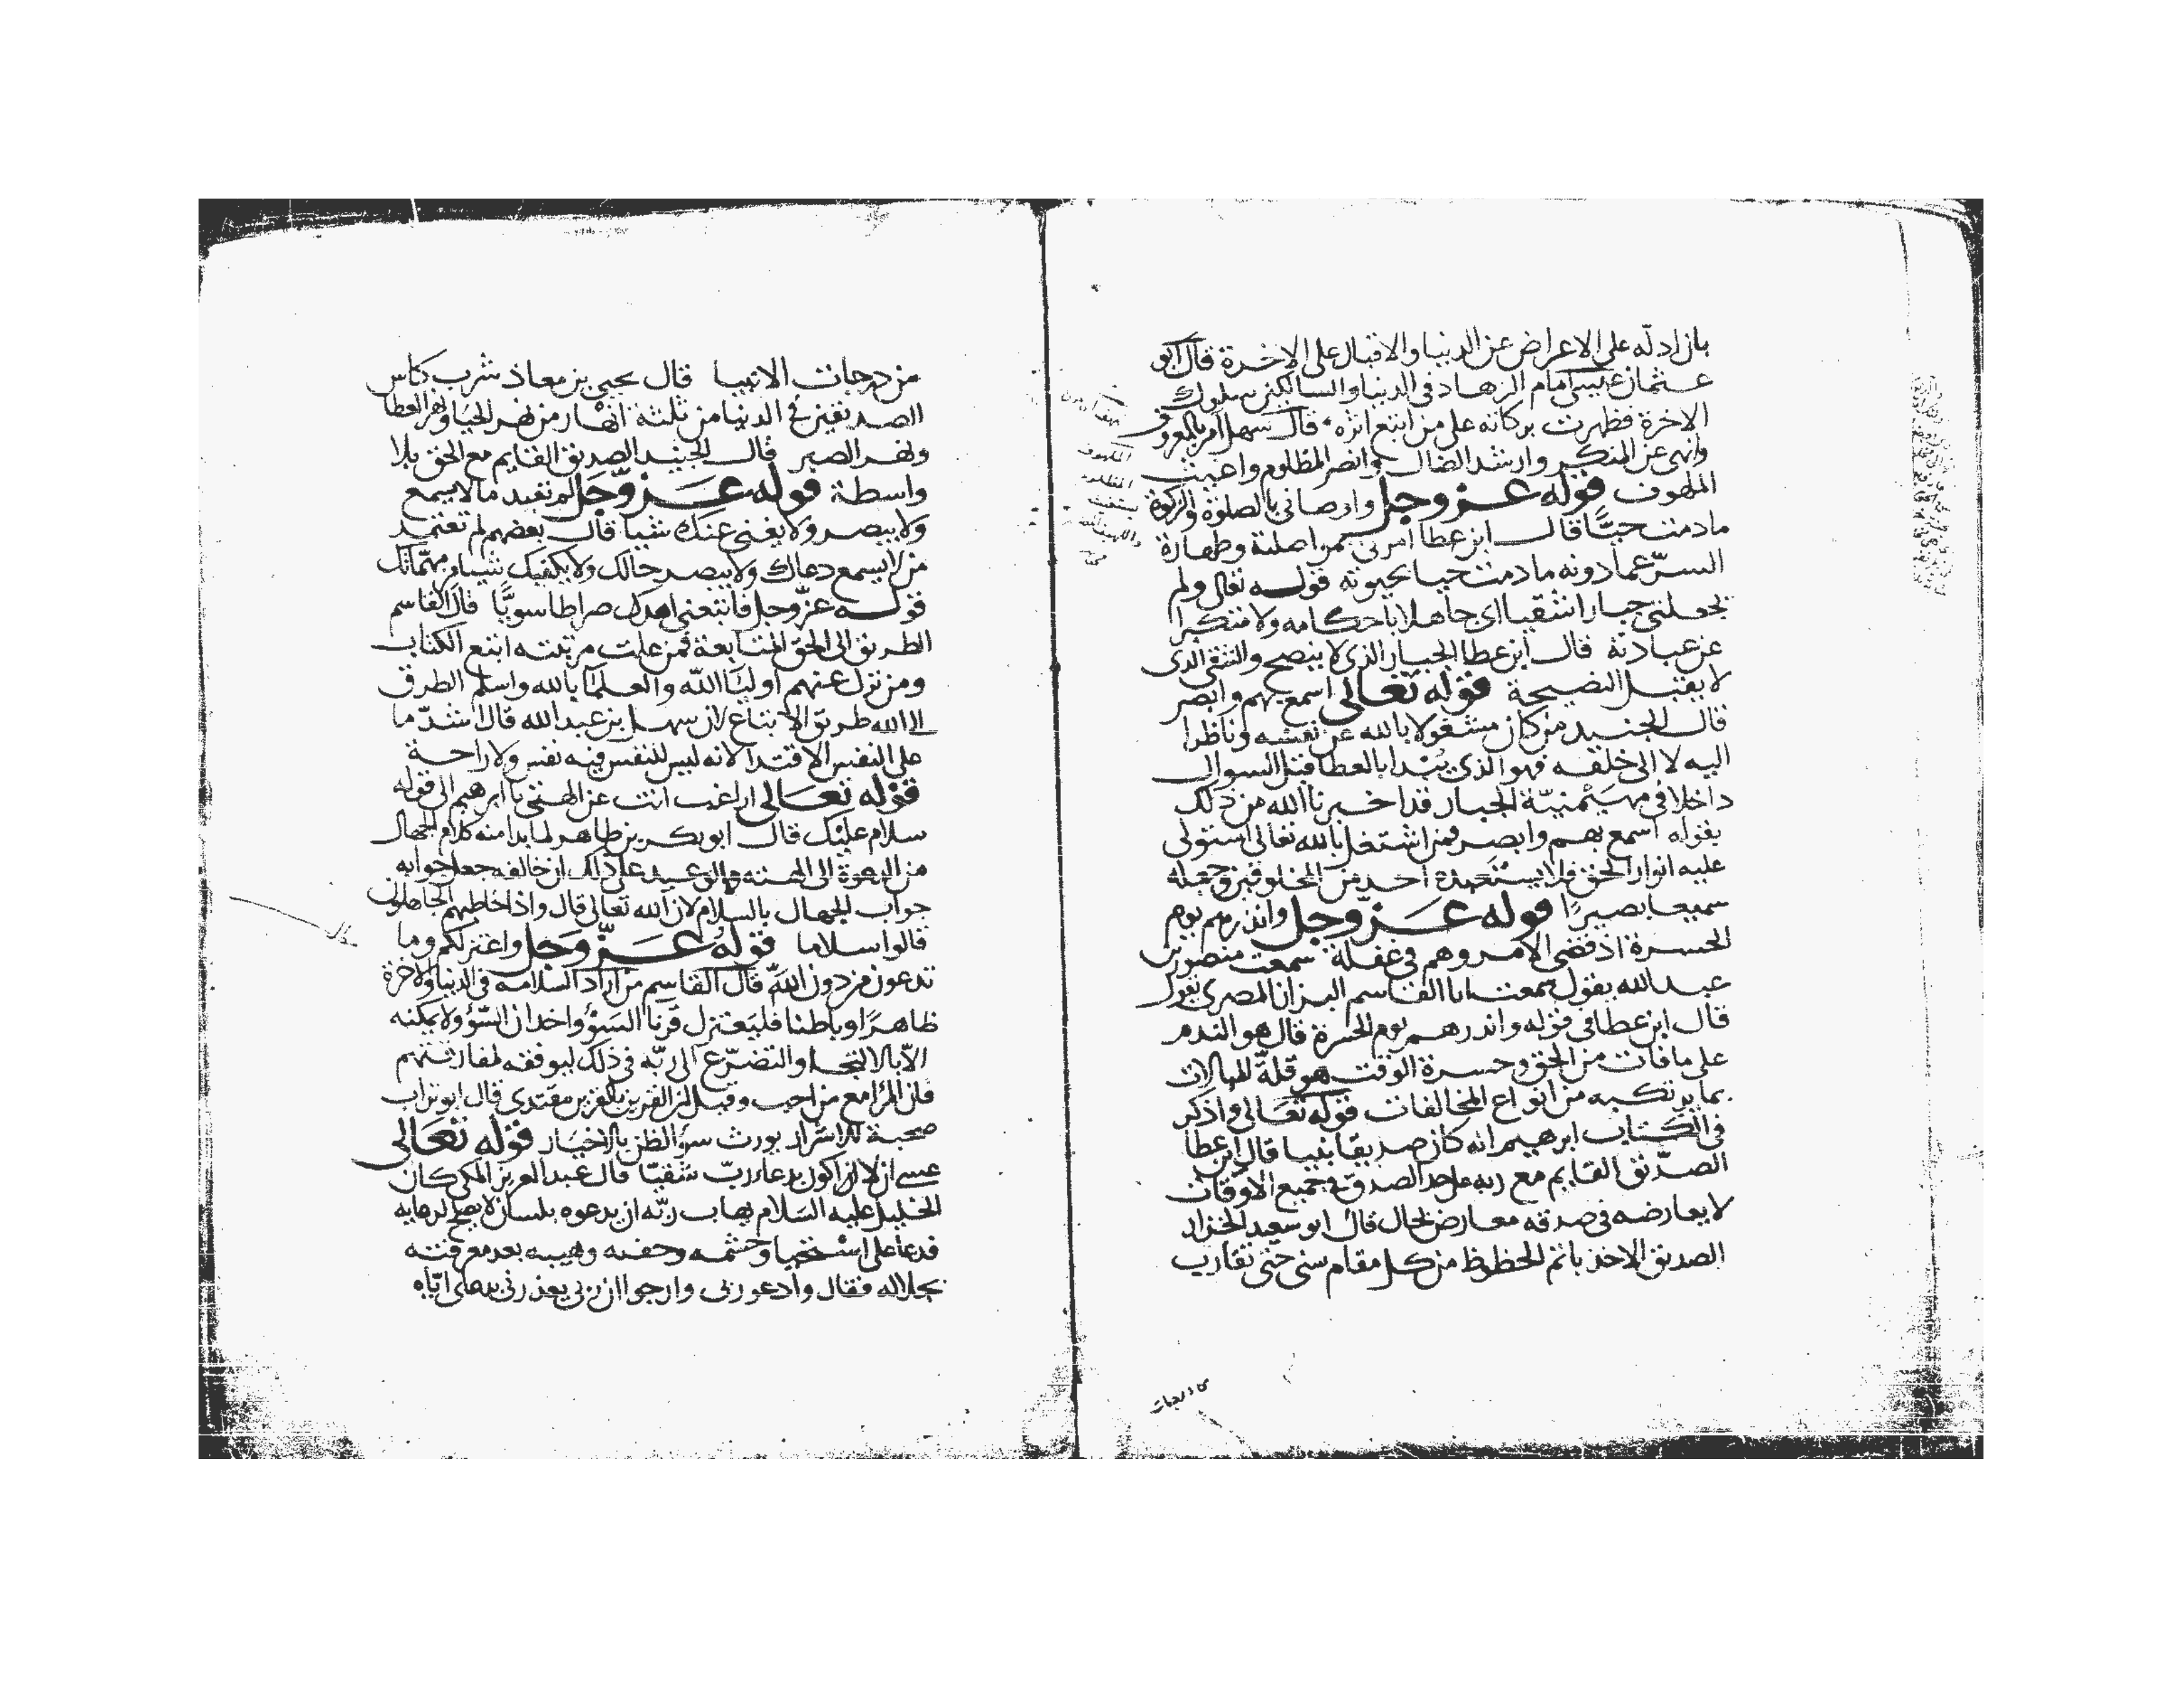 بان ادله على الاعراض عن الدنيا والاقبال على الاخرة قال ابو
عثمان عيسى امام الزهاد فى الدنيا والسالكين سلوك
الاخرة فظهرت بركاته على من اتبع اثره قال سهل امر بالمعروف
وانهى عن المنكر وارشد الضال وانصر المظلوم واغيث
الملهوف قوله عز وجل واوصانى بالصلوة والزكوة
مادمت حيّا قال ابن عطا امرنى بمواصلته وطهارة
السرّ عما دونه ما دمت حيا بحيوته قوله تعالى ولم
يجعلنى جبارا شقيا اى جاهلا باحكامه ولا متكبرا
عن عبادته قال ابن عطا الجبار الذى لا ينصح والشقى الذى
لا يقبل النصيحة قوله تعالى اسمع بهم وابصر
قال الجنيد من كان مشغولا بالله عن نفسه وناظرا
اليه لا الى خلقه فهو الذى يُبدا بالعطا قبل السوال
داخلا فى مهيمنيّة الجبار قد اخبرنا الله من ذلك
بقوله اسمع بهم وابصر فمن اشتغل بالله تعالى استولى
عليه انوار الحق فلا يستعبده احد من المخلوقين وجعله
سميعا بصيرًا قوله عز وجل وانذرهم يوم
الحسرة اذ قضى الامر وهم فى غفلة سمعت منصور بن
عبد الله يقول سمعت ابا القاسم البزاز المصرى يقول
قال ابن عطا فى قوله وانذرهم يوم الحسرة قال هو الندم
على ما فات من الحق وحسرة الوقت هو قلّة المبالات
بما يرتكبه من انواع المخالفات قوله تعالى واذكر
فى الكتاب ابرهيم انه كان صديقا نبيا قال ابن عطا
الصدّيق القايم مع ربه على حد الصدق فى جميع الاوقات
لا يعارضه فى صدقه معارض بحال قال ابو سعيد الخزاز
الصديق الاخذ باتم الحظوظ من كل مقام سنى حتى تقارب
من درجات
من درجات الانبيا قال يحيى بن معاذ شرب كاس
الصديقين فى الدنيا من ثلثة انهار من نهر الحيا ونهر العطا
ونهر الصبر قال الجنيد الصديق القايم مع الحق بلا
واسطة قوله عز وجل لم تعبد ما لا يسمع
ولا يبصر ولا يغنى عنك شيا قال بعضهم لم تعتمد
من لا يسمع دعاك ولا يبصر حالك ولا يكفيك شيا من مهماتك
قوله عز وجل فاتبعنى اهدك صراطا سويًّا قال القاسم
الطريق الى الحق المتابعة فمن علت مرتبته اتبع الكتاب
ومن نزل عنهم اوليا الله والعلما بالله واسلم الطرق
الى الله طريق الاتباع لان سهل بن عبد الله قال اشدّ ما
على النفس الاقتدا لانه ليس للنفس فيه نفس ولا راحة
قوله تعالى اراغب انت عن الهتى يا ابرهيم الى قوله
سلام عليك قال ابو بكر بن طاهر لما بدا منه كلام الجهال
من الدعوة الى الهته والوعيد على ذلك ان خالفه جعل جوابه
جواب الجهال بالسلام لان الله تعالى قال واذا خاطبهم الجاهلون
قالوا سلاما قوله عز وجل واعتزلكم وما
تدعون من دون الله قال القاسم من اراد السلامة فى الدنيا والاخرة
ظاهرًا وباطنا فليعتزل قرنا السَوْ واخدان السّوْ ولا يمكنه
الّا بالالتجا والتضرّع الى ربّه فى ذلك ليوفقه لمفارقتهم
فان المرا مع من احب وقيل ان القرين بالقرين مقتدى قال ابو تراب
صحبة الاشرار يورث سوَ الظن بالاخيار قوله تعالى
عسى ان لا اكون بدعاء ربّ شقيّا قال عبد العزيز المكى كان
الخليل عليه السلام يهاب ربّه ان يدعوه بلسان لا يصلح لدعايه
فدعا على استحيا وحشمه وخفيه وهيبه بعد معرفته
بجلاله فقال وادعو ربى وارجو ان ربى يعذرنى بدعاى ايّاه